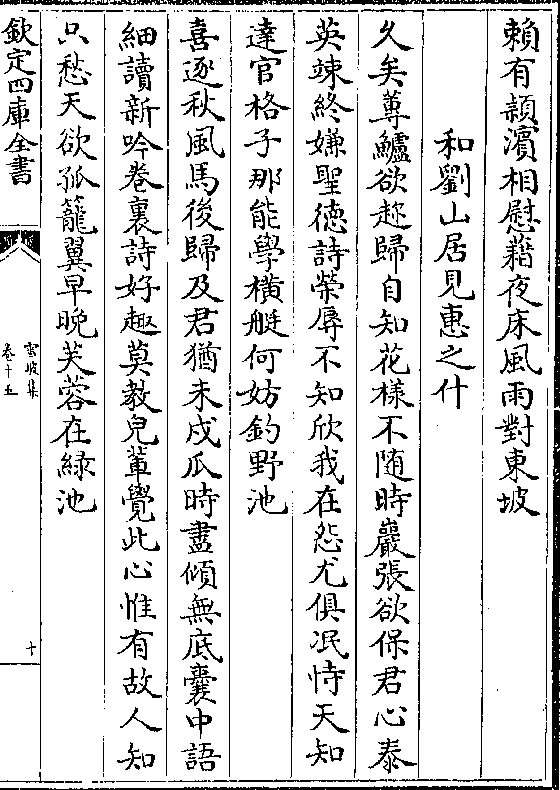 賴有潁濱相慰藉夜床風雨對東坡
和劉山居見惠之什
久矣蓴鱸欲趂歸自知花樣不隨時嚴張欲保君心泰
英竦終嫌聖徳詩榮辱不知欣我在怨尤俱泯恃天知
達官格子那能學橫艇何妨釣野池
喜逐秋風馬後歸及君猶未戍瓜時盡傾無底囊中語
細讀新吟卷裏詩好趣莫教兒輩覺此心惟有故人知
只愁天欲孤籠翼早晩芙蓉在緑池
欽定四庫全書
雪坡集
卷十五
十